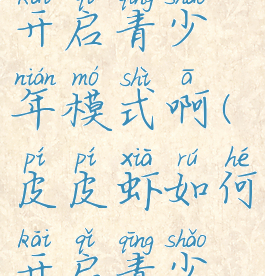 kāi qǐ qīng shǎo
开启青少
nián mó shì ā
年模式啊(
pí pí xiā rú hé
皮皮虾如何
kāi qǐ qīng shǎo
开启青少